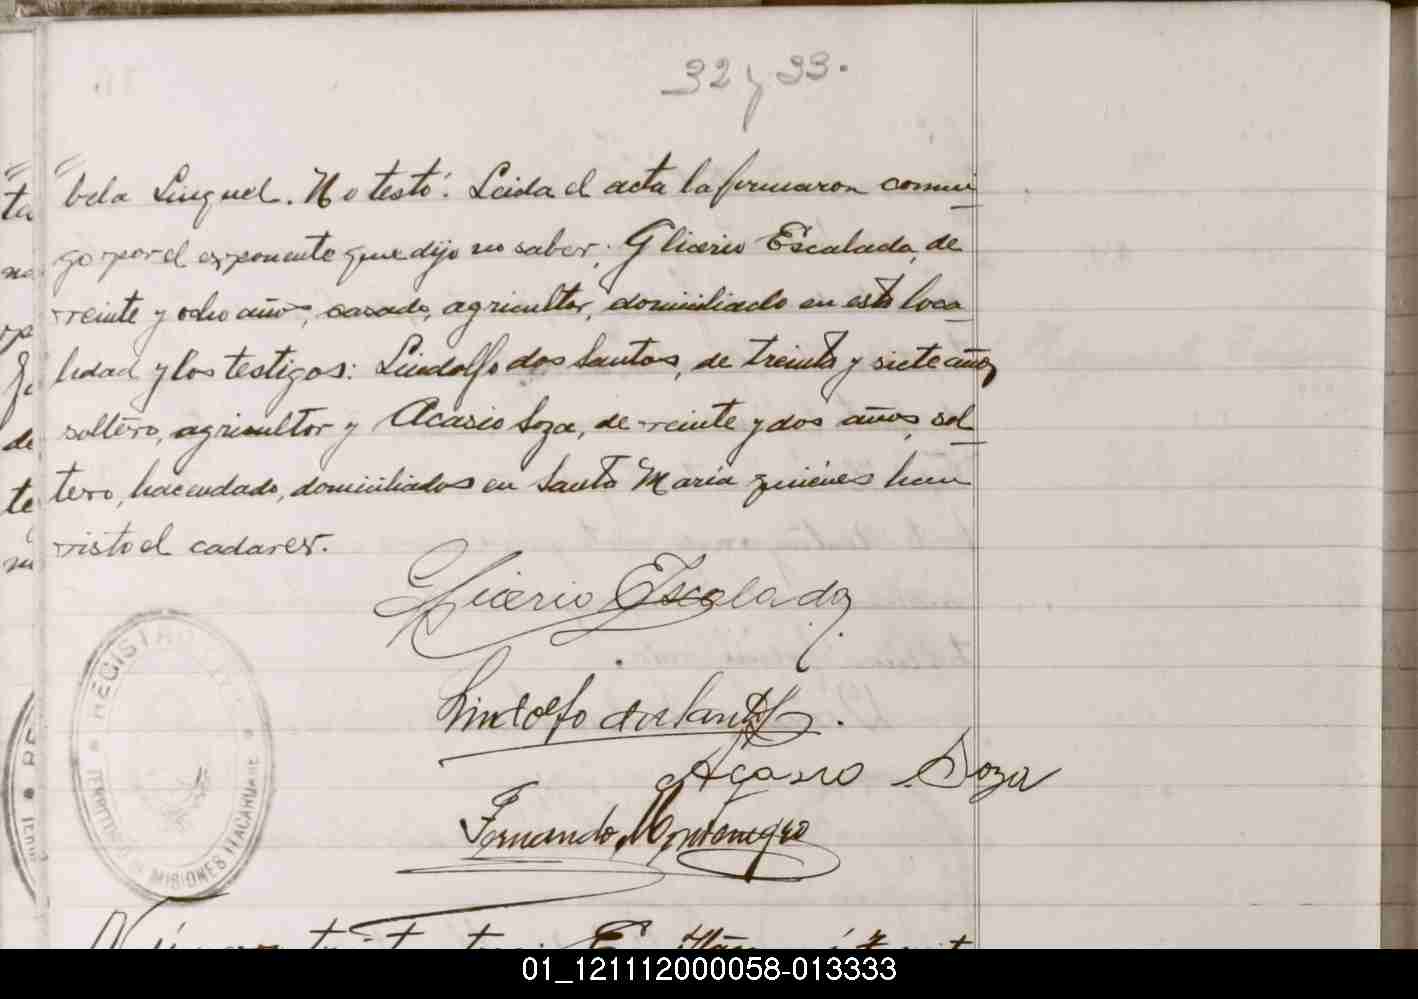 32 y 33.
bela Linguel. No testó. Leida el acta la firmaron conmi
go por el exponente que dijo no saber, Glicerio Escalada, de
veinte y ocho años, casado, agricultor, domiciliado en esta loca
lidad y los testigos: Lindolfo dos Santos, de treinta y siete años
soltero, agricultor y Acasio Soza, de veinte y dos años, sol
tero, hacendado, domiciliados en Santa María quienes han
visto el cadaver.
Glicerio Escalada
Lindolfo dos Santos.
Acasio Soza
Fernando Montenegro
REGISTRO
TERRITORIO DE MISIONES ITACARUARE
01_121112000058-013333